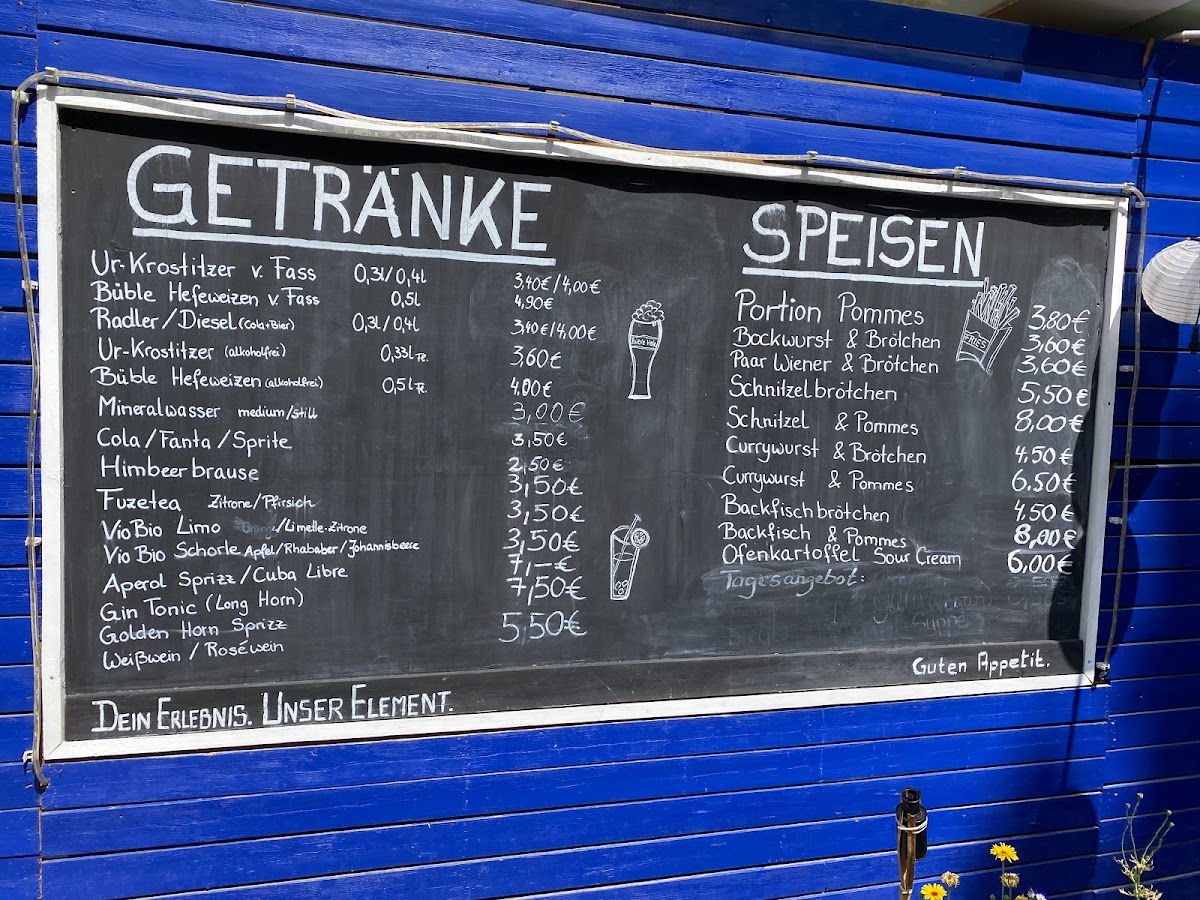 GETRÄNKE
Ur-Krostitzer v. Fass 0,3l/0,4l 3,40€/4,00€
Büble Hefeweizen v. Fass 0,5l 4,90€
Radler/Diesel (Cola+Bier) 0,3l/0,4l 3,40€/4,00€
Ur-Krostitzer (alkoholfrei) 0,33l Fl. 3,60€
Büble Hefeweizen (alkoholfrei) 0,5l Fl. 4,00€
Mineralwasser medium/still 3,00€
Cola/Fanta/Sprite 3,50€
Himbeerbrause 2,50€
Fuzetea Zitrone/Pfirsich 3,50€
VioBio Limo /Limette-Zitrone 3,50€
VioBio Schorle Apfel/Rhababer/Johannisbeere 3,50€
Aperol Sprizz/Cuba Libre 7,-€
Gin Tonic (Long Horn) 7,50€
Golden Horn Sprizz
Weißwein/Roséwein 5,50€
DEIN ERLEBNIS. UNSER ELEMENT.
SPEISEN
Portion Pommes 3,80€
Bockwurst & Brötchen 3,60€
Paar Wiener & Brötchen 3,60€
Schnitzelbrötchen 5,50€
Schnitzel & Pommes 8,00€
Currywurst & Brötchen 4,50€
Currywurst & Pommes 6.50€
Backfischbrötchen 4,50€
Backfisch & Pommes 8,00€
Ofenkartoffel Sour Cream 6,00€
Tagesangebot:
Suppe
Guten Appetit.
FRIES